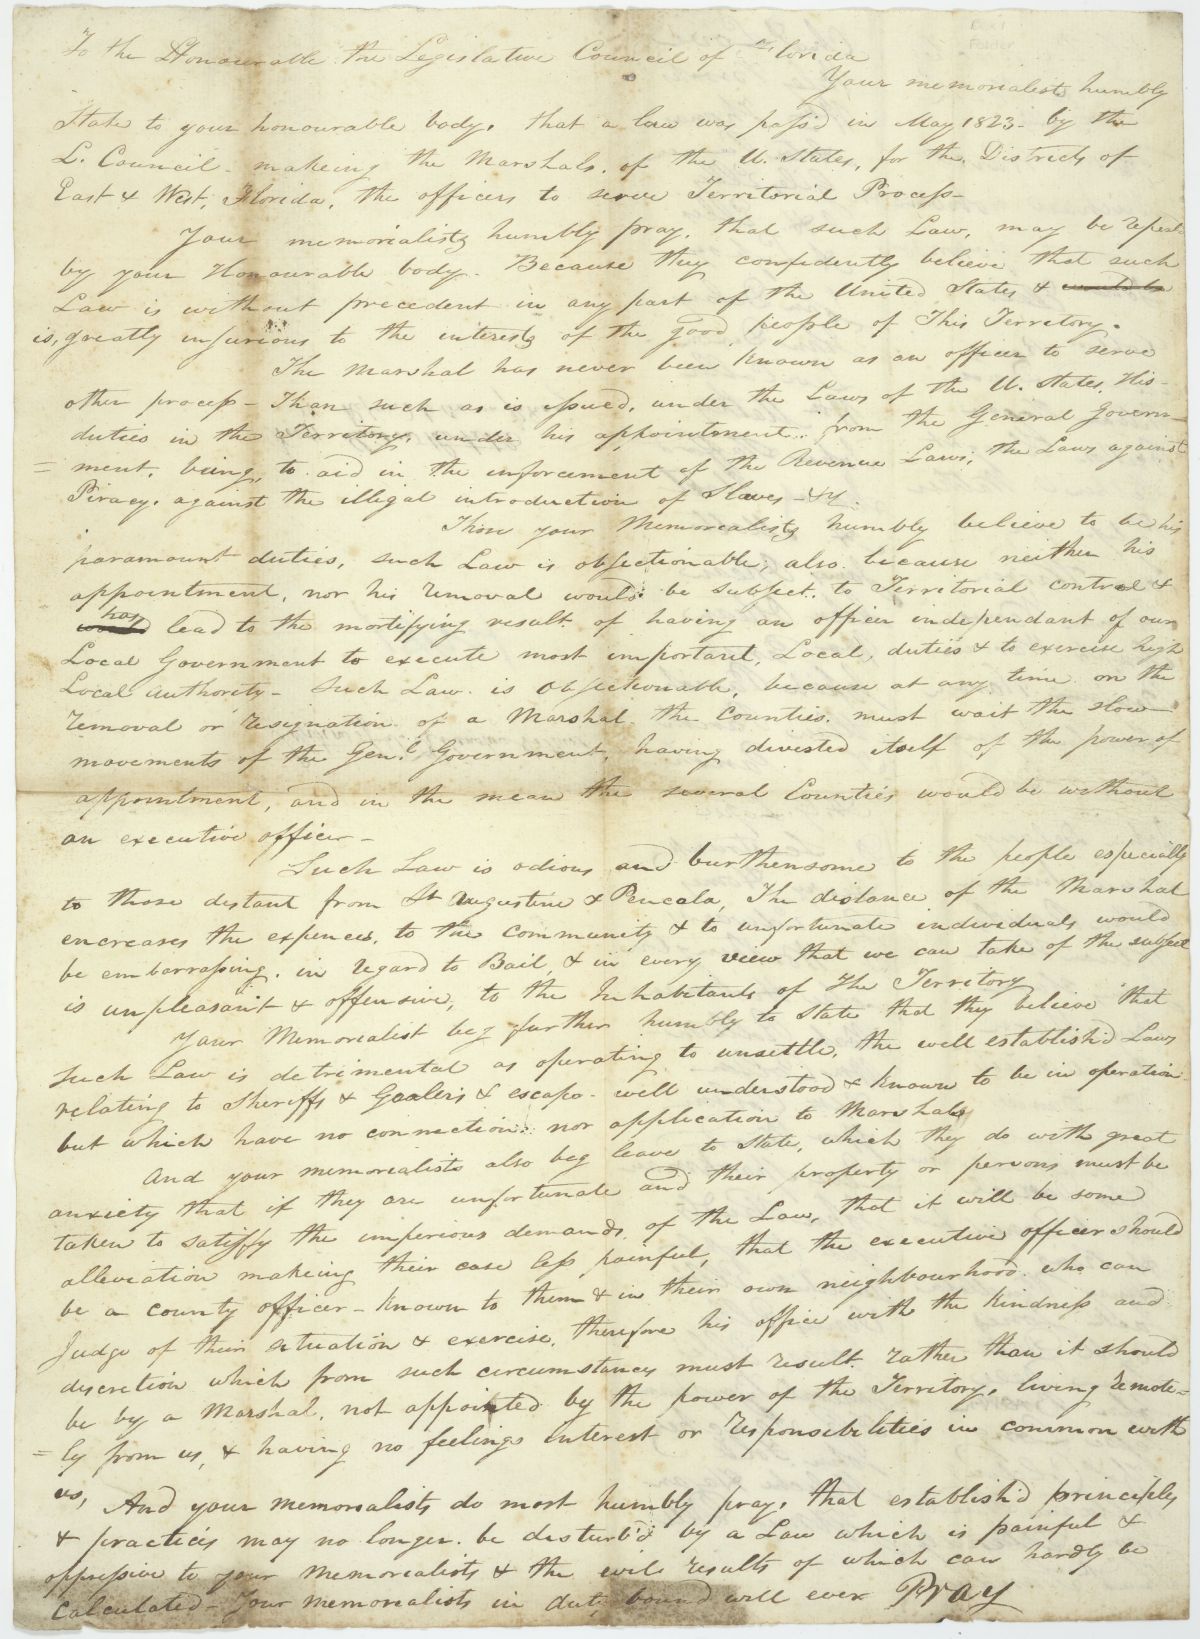 To the Honourable the Legislative Council of Florida
Your memorialists humbly
State to your honourable body, that a law was pass'd in May 1823 - by the
L. Council - makeing the Marshals, of the U. States, for the Districts of
East & West, Florida, the officers to serve Territorial Process -
Your memorialists humbly pray, that such Law, may be repeald
by your Honourable body - Because they confidently believe that such
Law is without precedent in any part of the United States & would be
is, greatly injurious to the interests of the good people of This Territory.
The Marshal has never been known as an officer to serve
other process - Than such as is issued, under the Laws of the U. States. His -
duties in the Territory, under his appointment, from the General Govern-
= ment, being, to aid in the inforcement of the Revenue Laws, the Laws against
Piracy, against the illegal introduction of Slaves - &c.
Those your Memorealists humbly believe to be his
paramount duties, such Law is objectionable, also because neither his
appointment, nor his removal would be subject, to Territorial control &
would has lead to the mortifying result of having an officer independant of our
Local Government to execute most important, Local, duties & to exercise high
Local authority - Such Law is objectionable, because at any time on the
removal or resignation of a Marshal the Counties, must wait the slow
movements of the Genl. Government, having divested itself of the power of
appointment, and in the mean the several Counties would be without
an executive officer -
Such Law is odious and burthensome to the people especially
to those distant from St Augustine & Pencala, The distance of the Marshal
encreases the expences, to the community & to unfortunate individuals would
be embarrassing, in regard to Bail, & in every view that we can take of the subject
is unpleasant & offensive, to the Inhabitants of The Territory
Your Memorialist beg further humbly to State that they believe that
such Law is detrimental as operating to unsettle, the well establish'd Laws
relating to Sheriffs & Goalers & escape - well understood & known to be in operation
but which have no connection nor application to Marshals
And your memorialists also beg leave to State, which they do with great
anxiety that if they are unfortunate and their property or persons must be
taken to satisfy the imperious demands, of the Law, that it will be some
alleviation making their case less painful, that the executive officer should
be a county officer - known to them & in their own neighbourhood who can
Judge of their situation & exercise, therefore his office with the kindness and
discretion which from such circumstances must result, rather than it should
be by a Marshal, not appointed by the power of the Territory, living remote=
= ly from us, & having no feelings interest or responsibilities in common with
us, And your memorialists do most humbly pray, that establish'd principles
& practices may no longer be disturb'd by a Law which is painful &
oppressive to your memorialists & the evil results of which can hardly be
Calculated - Your memorialists in duty bound will ever Pray